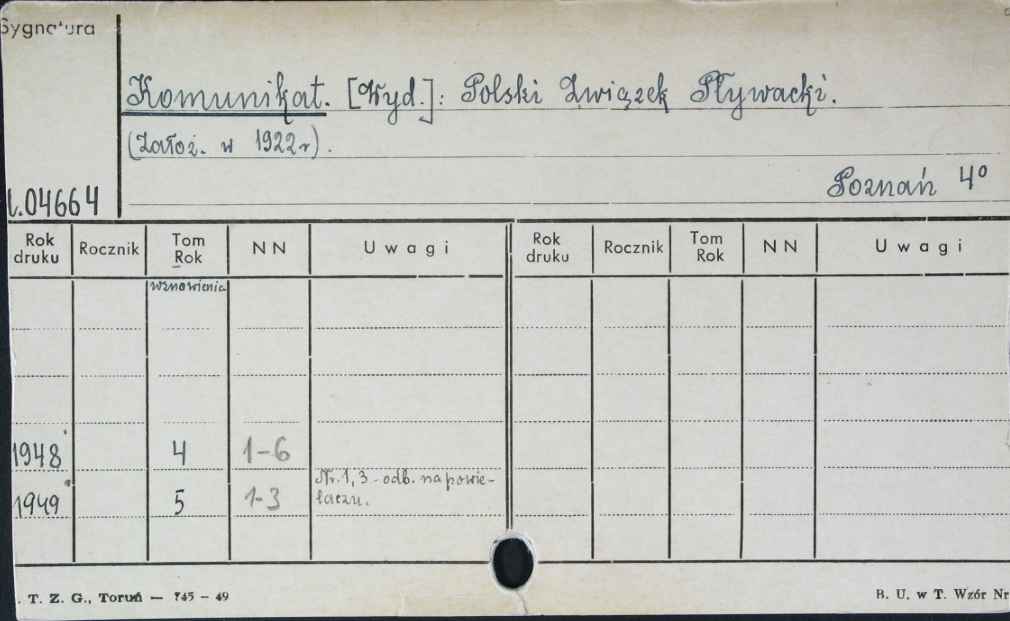 Sygnatura
Komunikat. [Wyd.]: Polski Związek Pływacki.
(Założ. w 1922r).
Poznań 4°
04664
Rok druku Rocznik Tom Rok NN Uwagi Rok druku Rocznik Tom Rok NN Uwagi
wznowienia
1948 4 1-6
1949 5 1-3 Nr. 1, 3 - odb. na powie-
laczu.
T. Z. G., Toruń — 745 – 49
B. U. w T. Wzór Nr